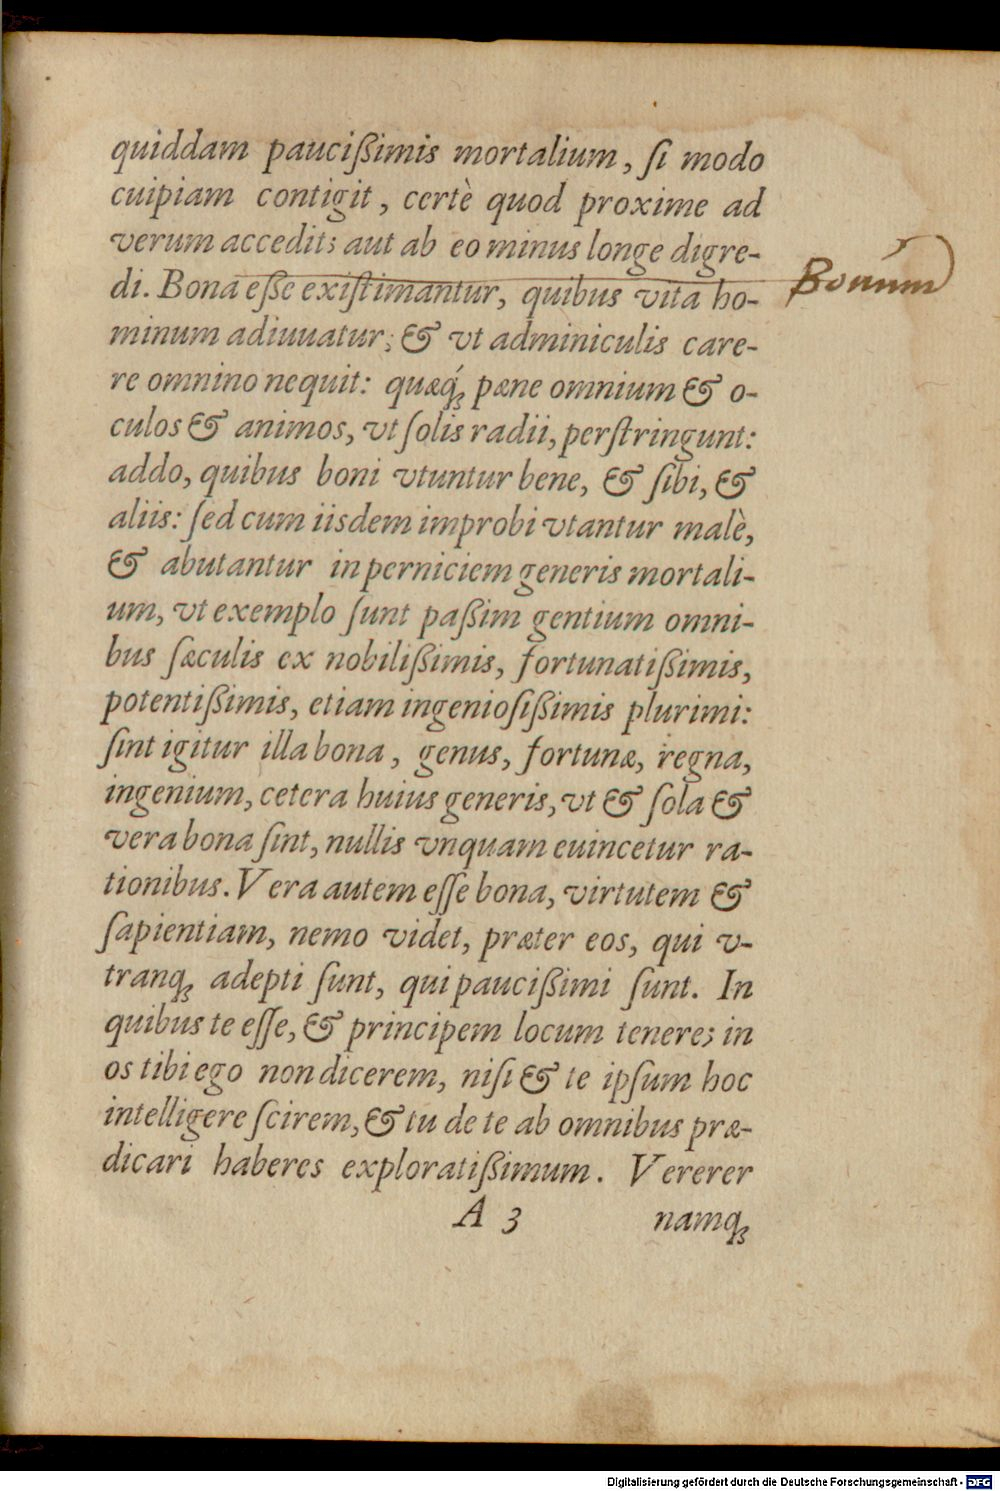 quiddam paucißimis mortalium, ſi modo
cuipiam contigit, certè quod proxime ad
verum accedit; aut ab eo minus longe digre-
di. Bona eſſe exiſtimantur, quibus vita ho-
Bonum
minum adiuuatur; & vt adminiculis care-
re omnino nequit: quæq́ꝫ pæne omnium & o-
culos & animos, vt ſolis radii, perſtringunt:
addo, quibus boni vtuntur bene, & ſibi, &
aliis: ſed cum iisdem improbi vtantur malè,
& abutantur in perniciem generis mortali-
um, vt exemplo ſunt paßim gentium omni-
bus ſæculis ex nobilißimis, fortunatißimis,
potentißimis, etiam ingenioſißimis plurimi:
ſint igitur illa bona, genus, fortunæ, regna,
ingenium, cetera huius generis, vt & ſola &
vera bona ſint, nullis vnquam euincetur ra-
tionibus. Vera autem eſſe bona, virtutem &
ſapientiam, nemo videt, præter eos, qui v-
tranqꝫ adepti ſunt, qui pauciſſimi ſunt. In
quibus te eſſe, & principem locum tenere; in
os tibi ego non dicerem, niſi & te ipſum hoc
intelligere ſcirem, & tu de te ab omnibus præ-
dicari haberes exploratißimum. Vererer
A 3 namqꝫ
Digitalisierung gefördert durch die Deutsche Forschungsgemeinschaft - DFG